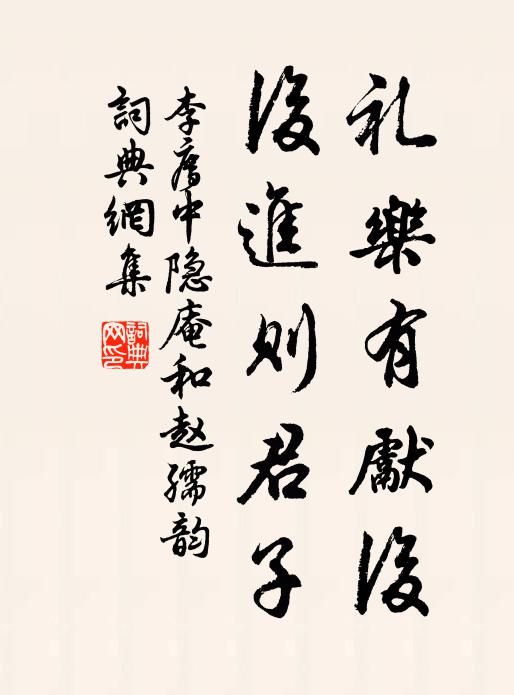 礼樂有獻後
後進則君子
李處中隐庵和赵孺韵
詞典網集
詞典網印